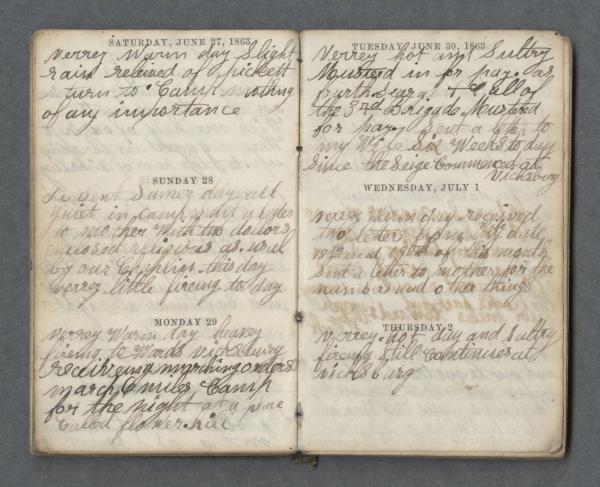 SATURDAY, JUNE 27, 1863.
verrey Warm day Slight
rain releived of pickett
return to Camp nothing
of any importance
SUNDAY 28
Pleasent Sumer day all
quiet in camp sent a letter
to mother With the doctors
religious as. well
by our Chaplign this day
verrey little fireing to day
MONDAY 29
verrey Warm day heavey
fireing to Wards vicksburg
receiveing marching orders
march 6 miles Camp
for the night at a place
Called flower. hill
TUESDAY, JUNE 30, 1863.
Verrey hot and Sultry
Musterd in for pay. as
Call of
the 3rd Brigade Musterd
for pay. Sent a letter to
my Wife Six Weeks to day
Since the Seige Commenced at
Vicksburg
WEDNESDAY, JULY 1
verrey Warm day received
two letters from
19th and of this month
Sent a letter to mother for the
numbers and other things
THURSDAY, 2
verrey. hot day and Sultry
fireing Still Continues at
vicksburg